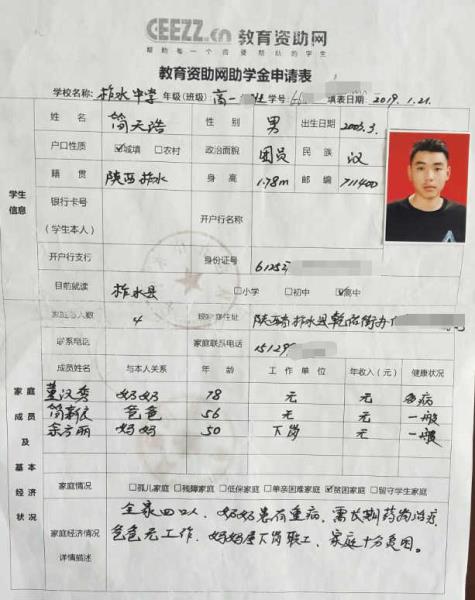 CEEZZ.cn 教育资助网
帮助每一个需要帮助的学生
教育资助网助学金申请表
学校名称: 柞水中学 年级(班级) 高一 班 学号 填表日期 2019.1.21.
姓名 简天浩 性别 男 出生日期 2003.3.
户口性质 ☑城填 □农村 政治面貌 团员 民族 汉
籍贯 陕西柞水 身高 1.78m 邮编 711400
学生信息
银行卡号
(学生本人) 开户行名称
开户行支行 身份证号 6125
目前就读 柞水县 □小学 □初中 ☑高中
家庭总人数 4 现家庭住址 陕西省柞水县乾佑街办
联系电话 家庭联系电话 15129
成员姓名 与本人关系 年龄 工作单位 年收入(元) 健康状况
董汉秀 奶奶 78 无 无 重病
简新民 爸爸 56 无 无 一般
余方丽 妈妈 50 下岗 无 一般
家庭成员及基本经济状况
家庭情况 □孤儿家庭 □残障家庭 □低保家庭 □单亲困难家庭 ☑贫困家庭 □留守学生家庭
家庭经济情况详情描述
全家四口人、奶奶患有重病、需长期药物治疗
爸爸无工作、妈妈是下岗职工、家庭十分贫困。